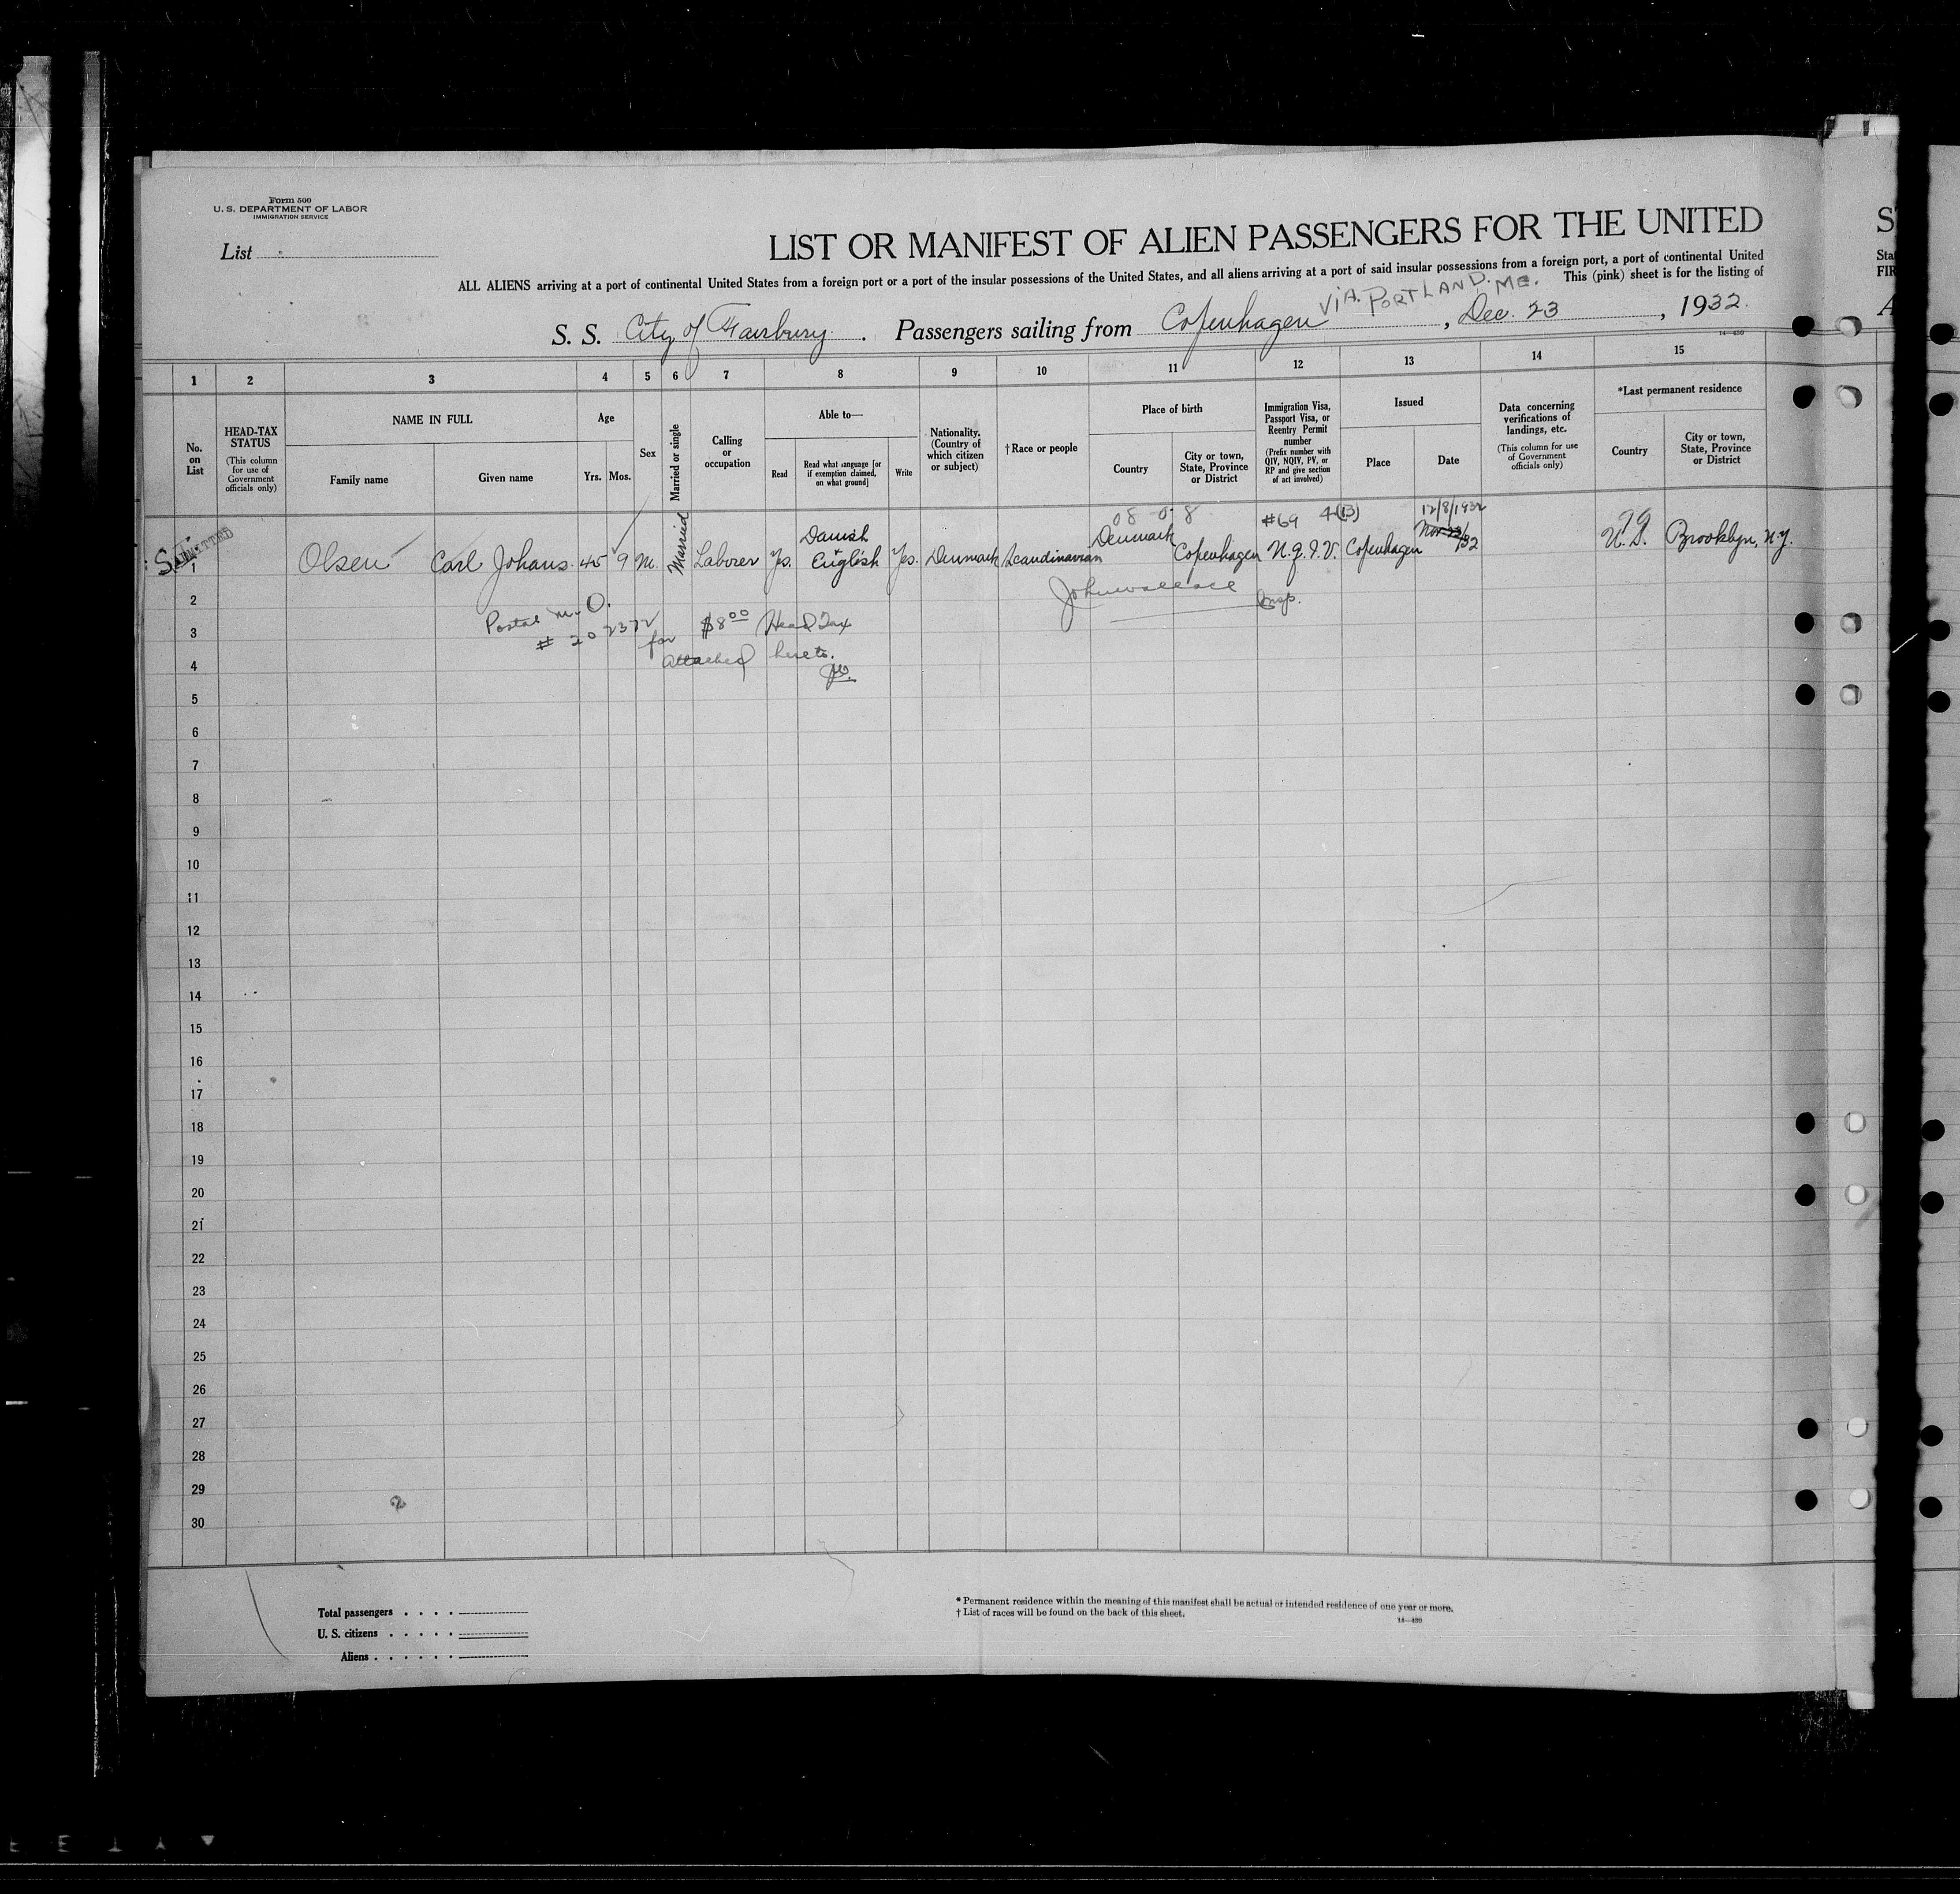 Form 500
U. S. DEPARTMENT OF LABOR
IMMIGRATION SERVICE
List
LIST OR MANIFEST OF ALIEN PASSENGERS FOR THE UNITED
ALL ALIENS arriving at a port of continental United States from a foreign port or a port of the insular possessions of the United States, and all aliens arriving at a port of said insular possessions from a foreign port, a port of continental United
This (pink) sheet is for the listing of
VIA. PORTLAND. ME.
S. S. City of Fairbury. Passengers sailing from Copenhagen, Dec. 23, 1932.
14—430
1 2 3 4 5 6 7 8 9 10 11 12 13 14 15
No. on List
HEAD-TAX STATUS
(This column for use of Government officials only)
NAME IN FULL
Family name
Given name
Age
Yrs. Mos.
Sex
Married or single
Calling or occupation
Able to—
Read
Read what language [or if exemption claimed, on what ground]
Write
Nationality. (Country of which citizen or subject)
†Race or people
Place of birth
Country
City or town, State, Province or District
Immigration Visa, Passport Visa, or Reentry Permit number
(Prefix number with QIV, NQIV, PV, or RP and give section of act involved)
Issued
Place
Date
Data concerning verifications of landings, etc.
(This column for use of Government officials only)
*Last permanent residence
Country
City or town, State, Province or District
ADMITTED
08 0 8 #69 4(13) 12/8/1932 99
1 Olsen Carl Johans. 45 9 M. Married Laborer Yes. Danish & English Yes. Denmark Scandinavian Denmark Copenhagen N.Q.I.V. Copenhagen Nov 22/32 U.S. Brooklyn, N.Y.
John Wallace Insp.
2
Postal M. O.
3
# 202372 for $8.00 Head Tax
4
attached hereto.
5
6
7
8
9
10
11
12
13
14
15
16
17
18
19
20
21
22
23
24
25
26
27
28
29
30
Total passengers
U. S. citizens
Aliens
* Permanent residence within the meaning of this manifest shall be actual or intended residence of one year or more.
† List of races will be found on the back of this sheet.
14—430